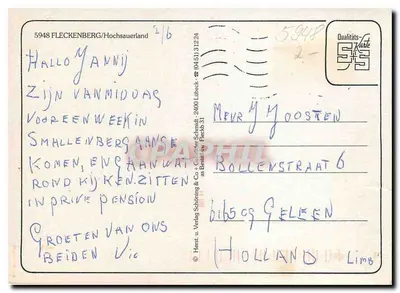 5948 FLECKENBERG/Hochsauerland
2/6
HALLO JANNIJ
ZIJN VANMIDDAG
VOOR EEN WEEK IN
SMALLENBERG AANGE
KOMEN, EN GAAN WAT
ROND KIJKEN. ZITTEN
IN PRIVE PENSION
GROETEN VAN ONS
BEIDEN
© Herst. u. Verlag Schöning & Co + 2400 Lübeck · ☎ (0451) 31 22 4
Fleckb 31
5948
2-
Qualitäts-
Karte
MEVR J JOOSTEN
BOLLENSTRAAT 6
6165 CG GELEEN
HOLLAND LIMB